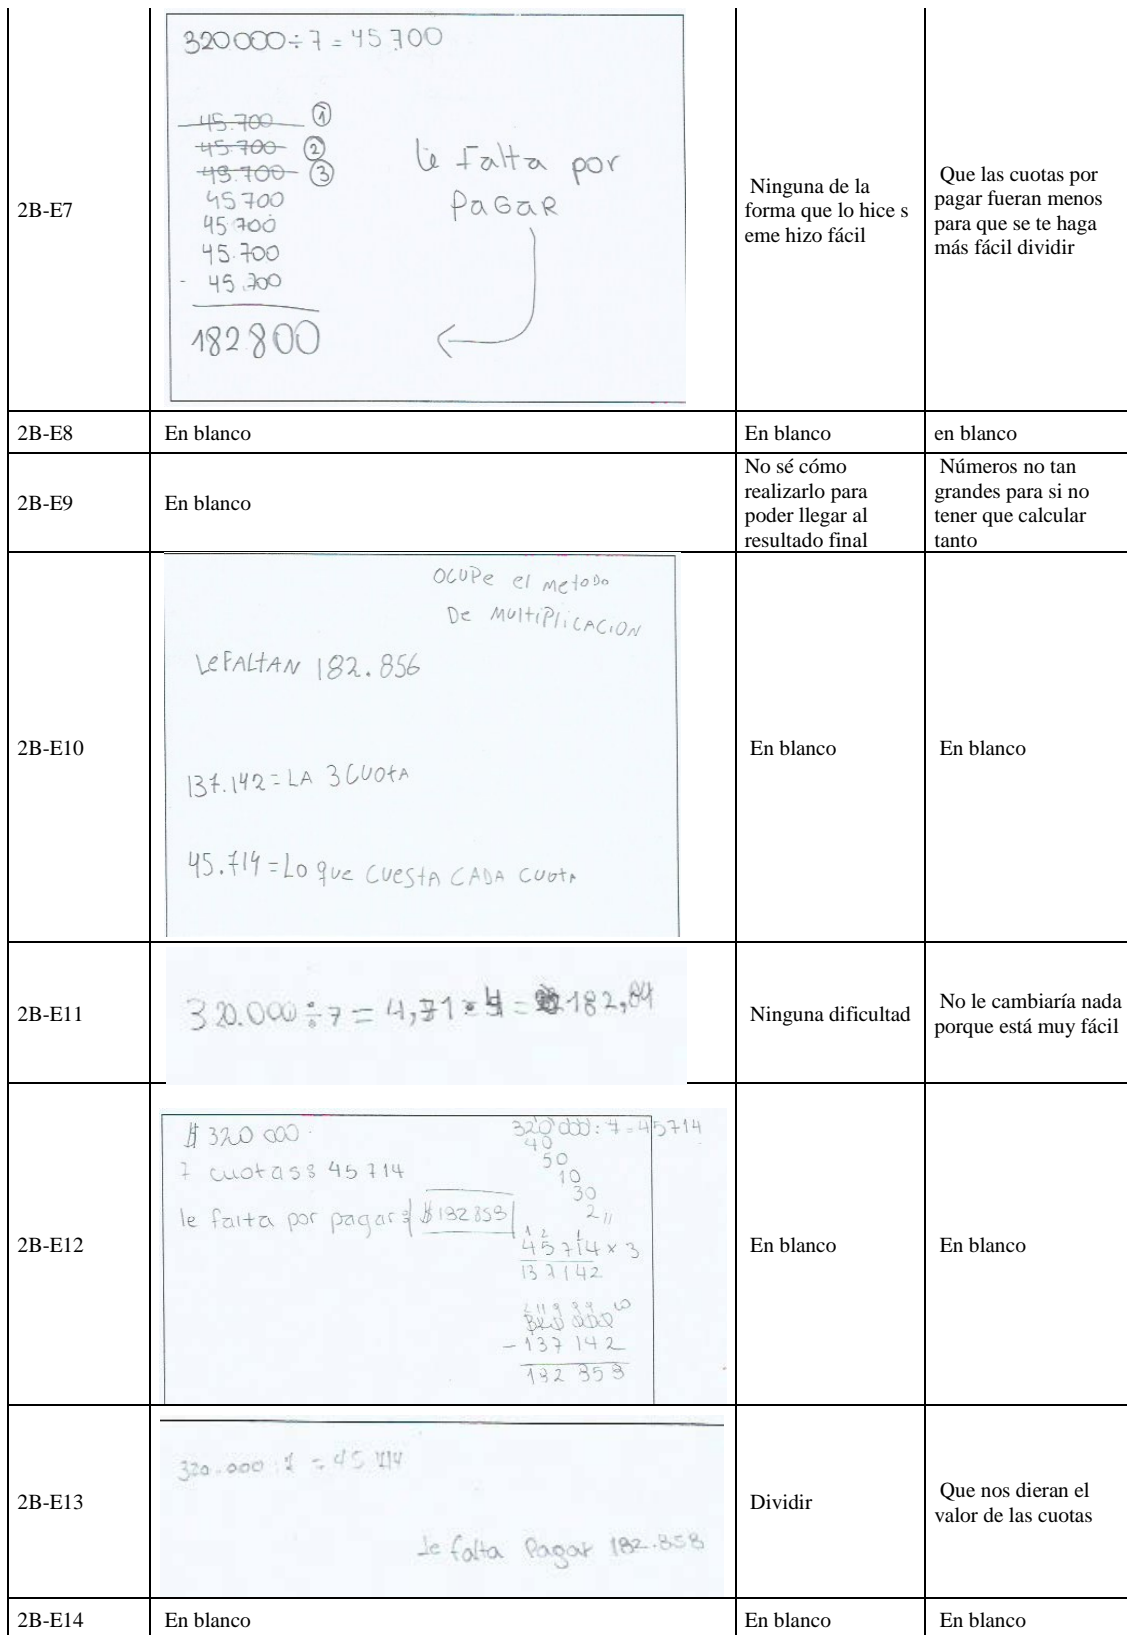 2B-E7
320000÷7=45700
45.700 ①
45700 ②
45.700 ③
45700
45.700
45.700
- 45.700
182.800
le Falta por
PAGAR
Ninguna de la
forma que lo hice s
eme hizo fácil
Que las cuotas por
pagar fueran menos
para que se te haga
más fácil dividir
2B-E8
En blanco
En blanco
en blanco
2B-E9
En blanco
No sé cómo
realizarlo para
poder llegar al
resultado final
Números no tan
grandes para si no
tener que calcular
tanto
2B-E10
OCUPe el metodo
De MultiPliCACION
LeFALtAN 182.856
137.142=LA 3 CUOtA
45.714=Lo que CUEStA CADA CUOtA
En blanco
En blanco
2B-E11
320.000÷7=4,71·4=182,84
Ninguna dificultad
No le cambiaría nada
porque está muy fácil
2B-E12
$ 320 000.
7 cuotas: 45 714
le falta por pagar: $182858
320'000:7=45714
40
50
10
30
2,,
45714 x 3
137142
320 000
-137 142
182 858
En blanco
En blanco
2B-E13
320.000:7=45 714
le falta Pagar 182.858
Dividir
Que nos dieran el
valor de las cuotas
2B-E14
En blanco
En blanco
En blanco